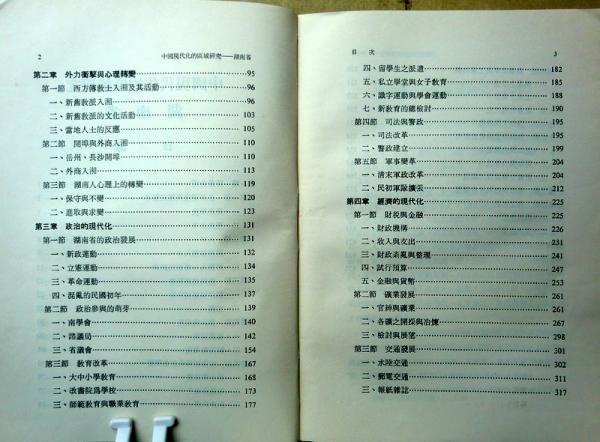 2 中國現代化的區域研究——湖南省
第二章 外力衝擊與心理轉變 95
第一節 西方傳教士入湘及其活動 96
一、新舊教派入湘 96
二、新舊教派的文化活動 103
三、當地人士的反應 105
第二節 開埠與外商入湘 110
一、岳州、長沙開埠 110
二、外商入湘 113
第三節 湖南人心理上的轉變 119
一、保守與不變 120
二、進取與求變 123
第三章 政治的現代化 131
第一節 湖南省的政治發展 131
一、新政運動 132
二、立憲運動 134
三、革命運動 135
四、混亂的民國初年 137
第二節 政治參與的萌芽 139
一、南學會 140
二、諮議局 142
三、省議會 154
第三節 教育改革 167
一、大中小學教育 168
二、改書院為學校 173
三、師範教育與職業教育 177
目 次 3
四、留學生之派遣 182
五、私立學堂與女子教育 185
六、識字運動與學會運動 188
七、新教育的總檢討 190
第四節 司法與警政 195
一、司法改革 195
二、警政建立 199
第五節 軍事變革 204
一、清末軍政改革 204
二、民初軍隊擴張 212
第四章 經濟的現代化 225
第一節 財稅與金融 225
一、財政機構 226
二、收入與支出 231
三、財政紊亂與整理 241
四、試行預算 247
五、金融與貨幣 253
第二節 礦業發展 261
一、官紳與礦業 261
二、各礦之開採與冶煉 267
三、檢討與展望 298
第三節 交通發展 301
一、水陸交通 302
二、郵電交通 311
三、報紙雜誌 317